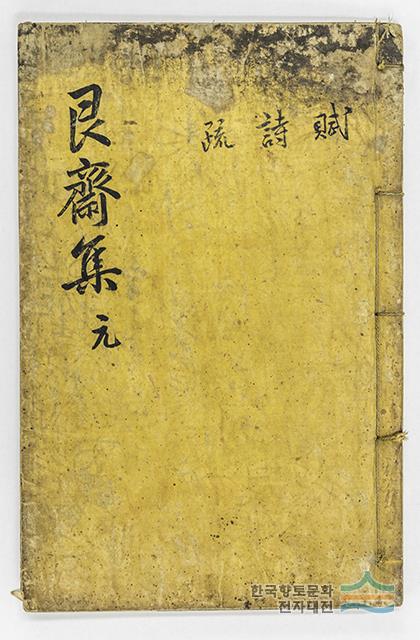 賦 詩 疏
艮齋集 元
한국향토문화
전자대전